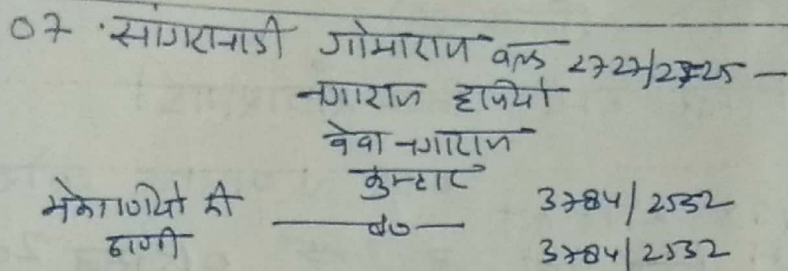 07 · सांगरानाडी गोमाराम वल्द 2727/2725 —
नगाराम हापियो
बेवा नगाराम
कुम्हार
की 3784/2532
ढाणी 3784/2532